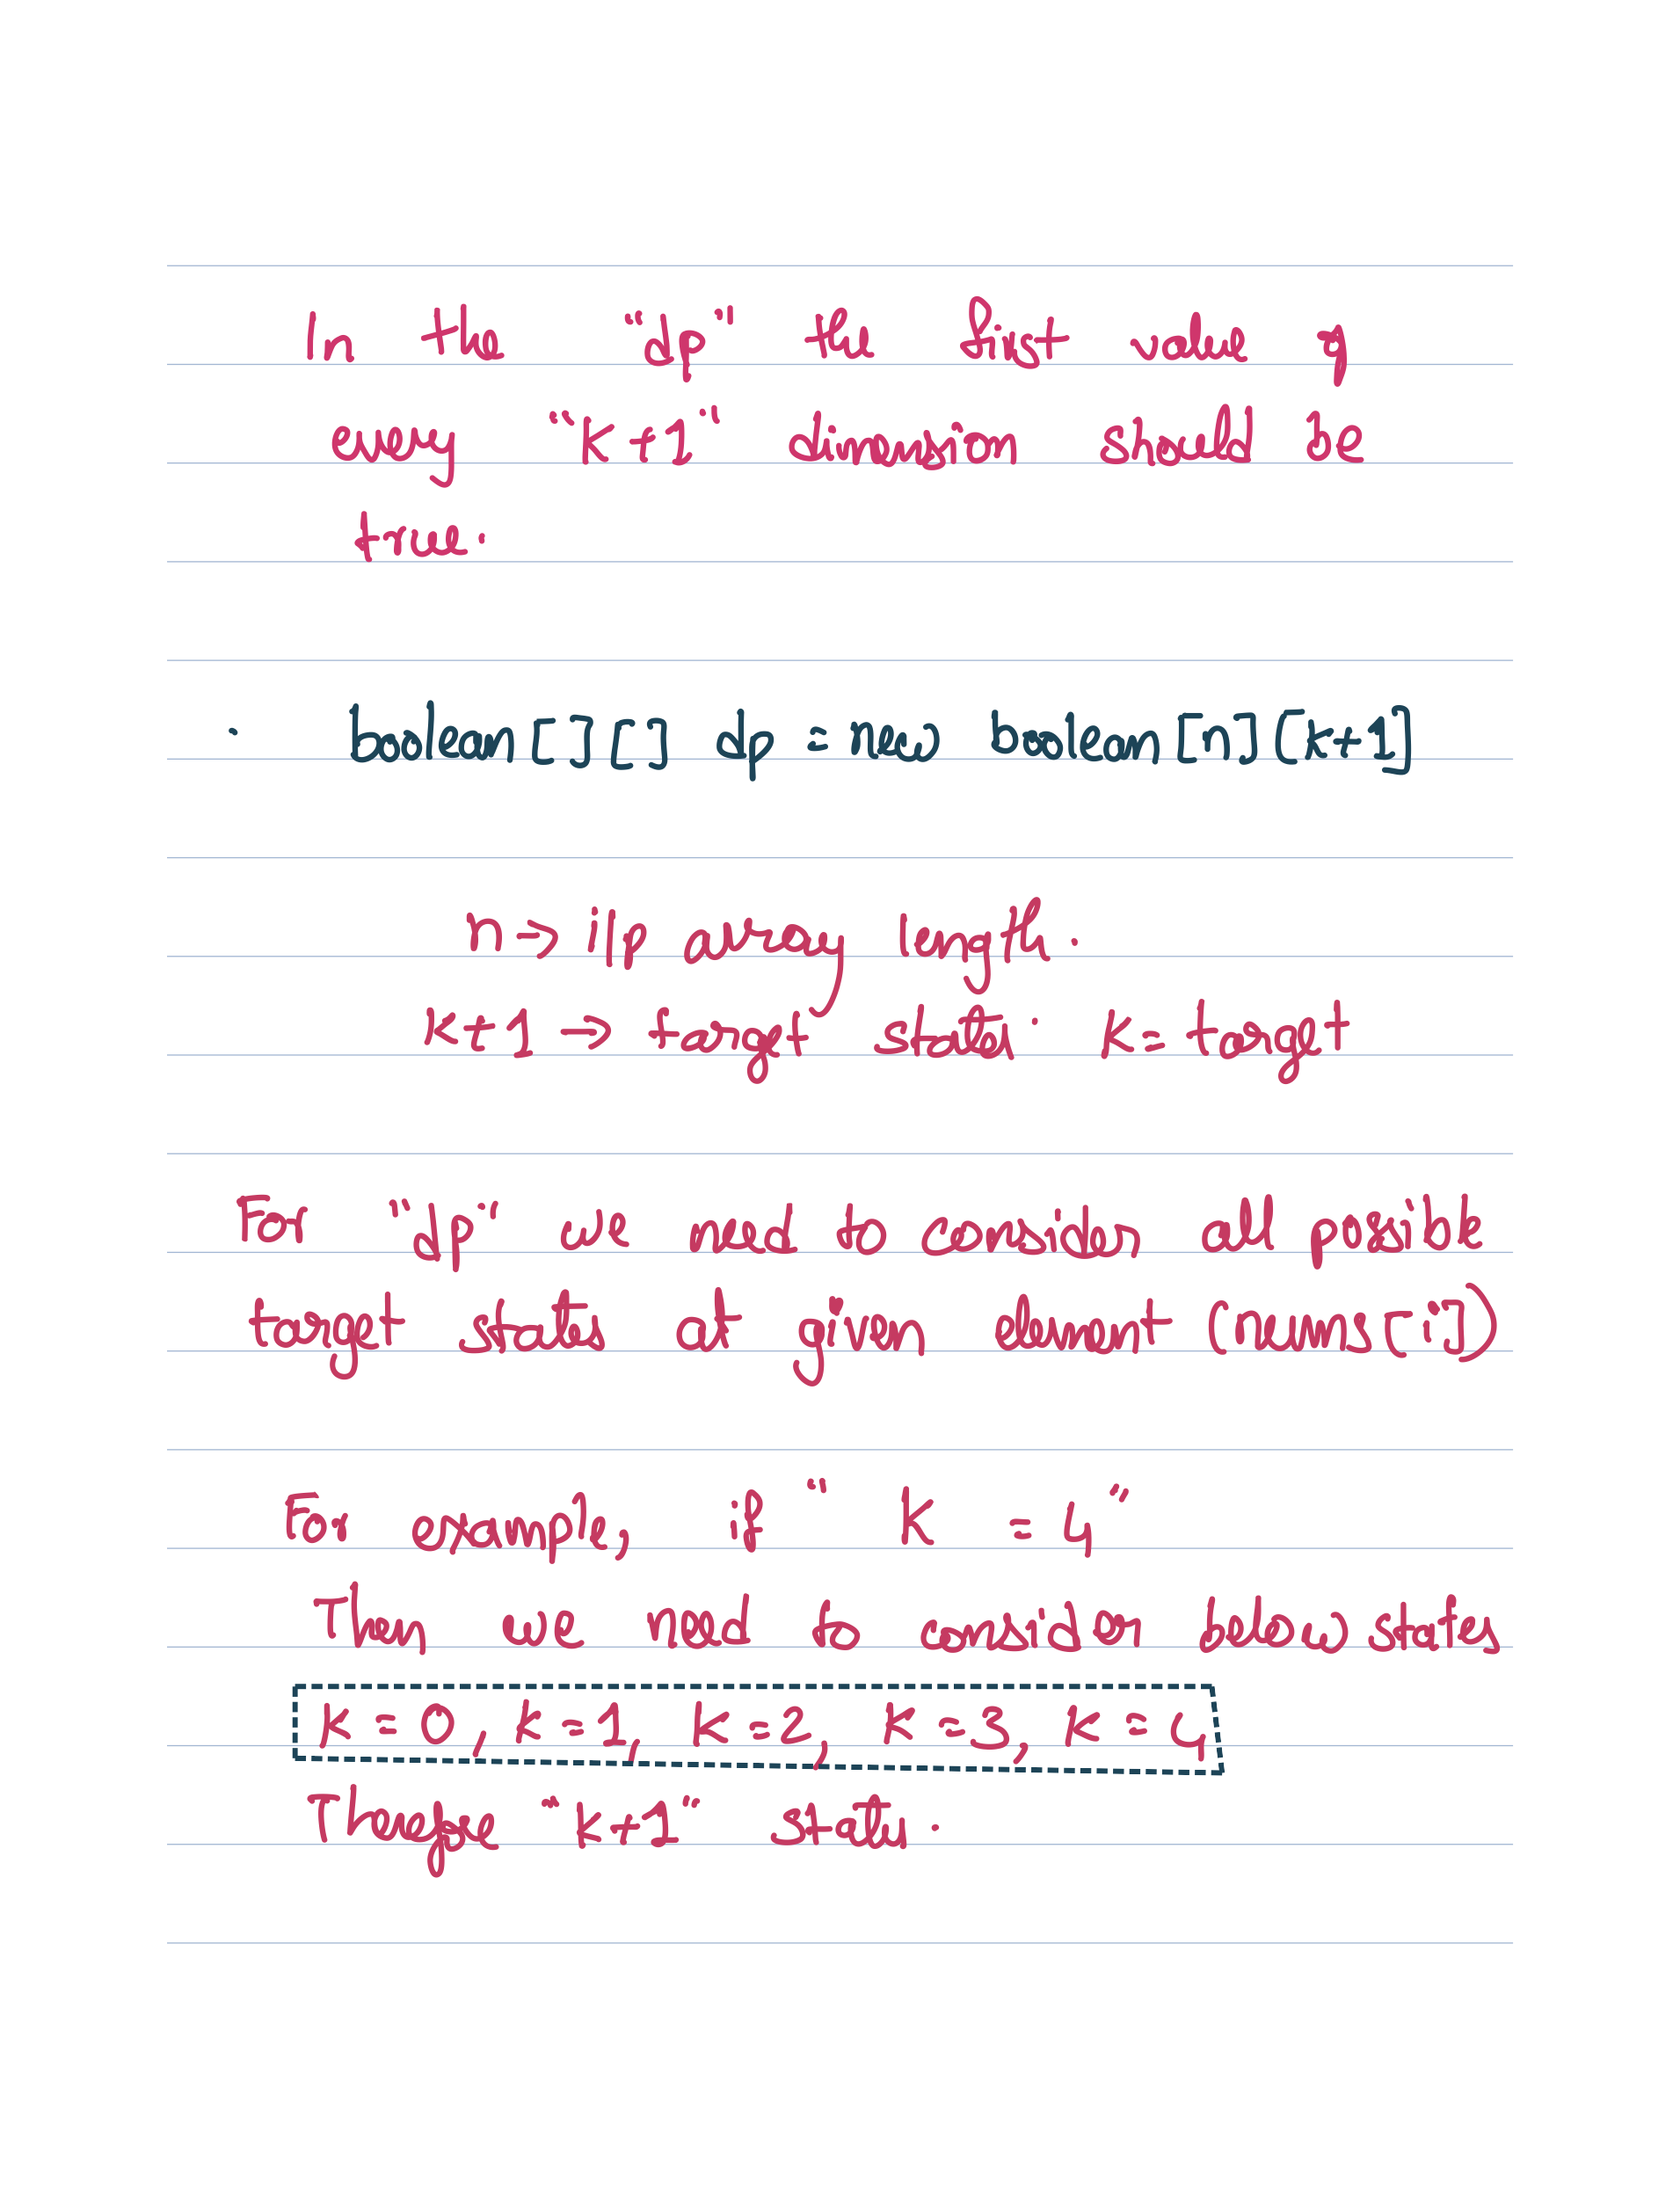 In the "dp" the first value of
every "K+1" dimension should be
true.
. boolean[][] dp = new boolean[n][k+1]
n → i/p array length.
K+1 → target states. K = target
For "dp" we need to consider all possible
target states at given element (nums[i])
For example, if " K = 4"
Then we need to consider below states
K=0, K=1, K=2, K=3, K=4
Therefore "K+1" states.